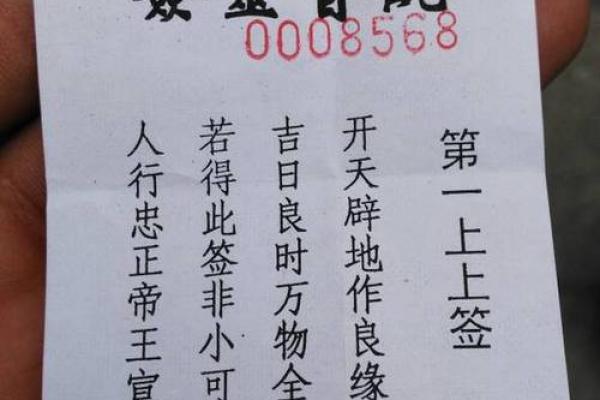 0008568
第一上上签
开天辟地作良缘
吉日良时万物全
若得此签非小可
人行忠正帝王宣